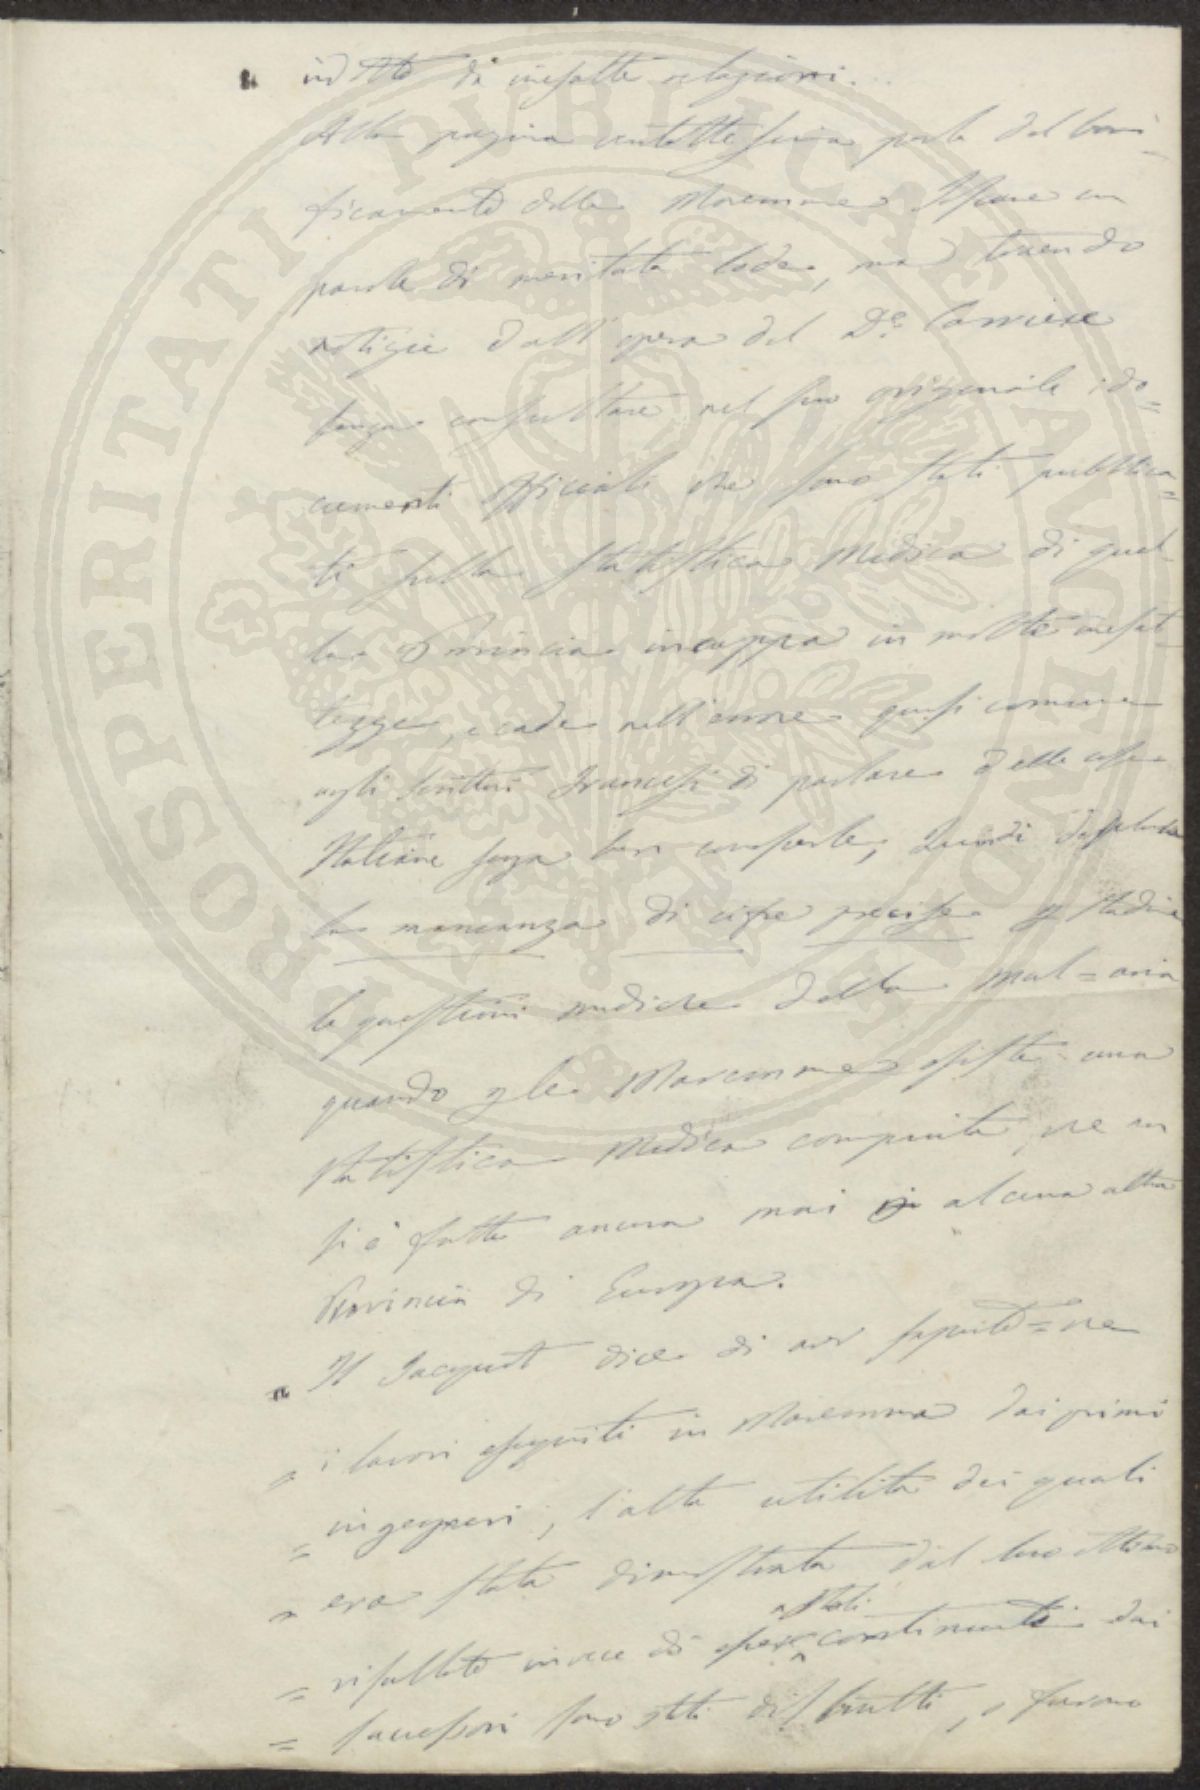 indotto da inesatte relazioni...
Alla pagina centottesima parla del boni-
ficamento delle Maremme Toscane con
parole di meritata lode, ma traendo
notizie dall'opera del D.e Carriere
senza consultare nel suo originale i do=
cumenti officiali che sono stati pubblica=
ti sulla Statistica Medica di quel-
la Provincia incappa in molte inesat-
tezze, e cade nell'errore quasi comune
agli scrittori Francesi di parlare delle cose
Italiane senza ben conoscerle; Quindi deplora
la mancanza di cifre precise p studiar
le questioni mediche della mal=aria
quando p le Maremme esiste una
Statistica Medica compiuta, che non
si è fatta ancora mai in alcuna altra
Provincia di Europa.
" Il Jacquot dice di aver saputo = che
= i lavori eseguiti in Maremma dai primi
= ingegneri, l'alta utilità dei quali
= era stata dimostrata dal loro ottimo
= risultato invece di esser stati continuati dai
= successori sono stati distrutti, e furono
PROSPERITATI PVBLICAE AVGENDAE